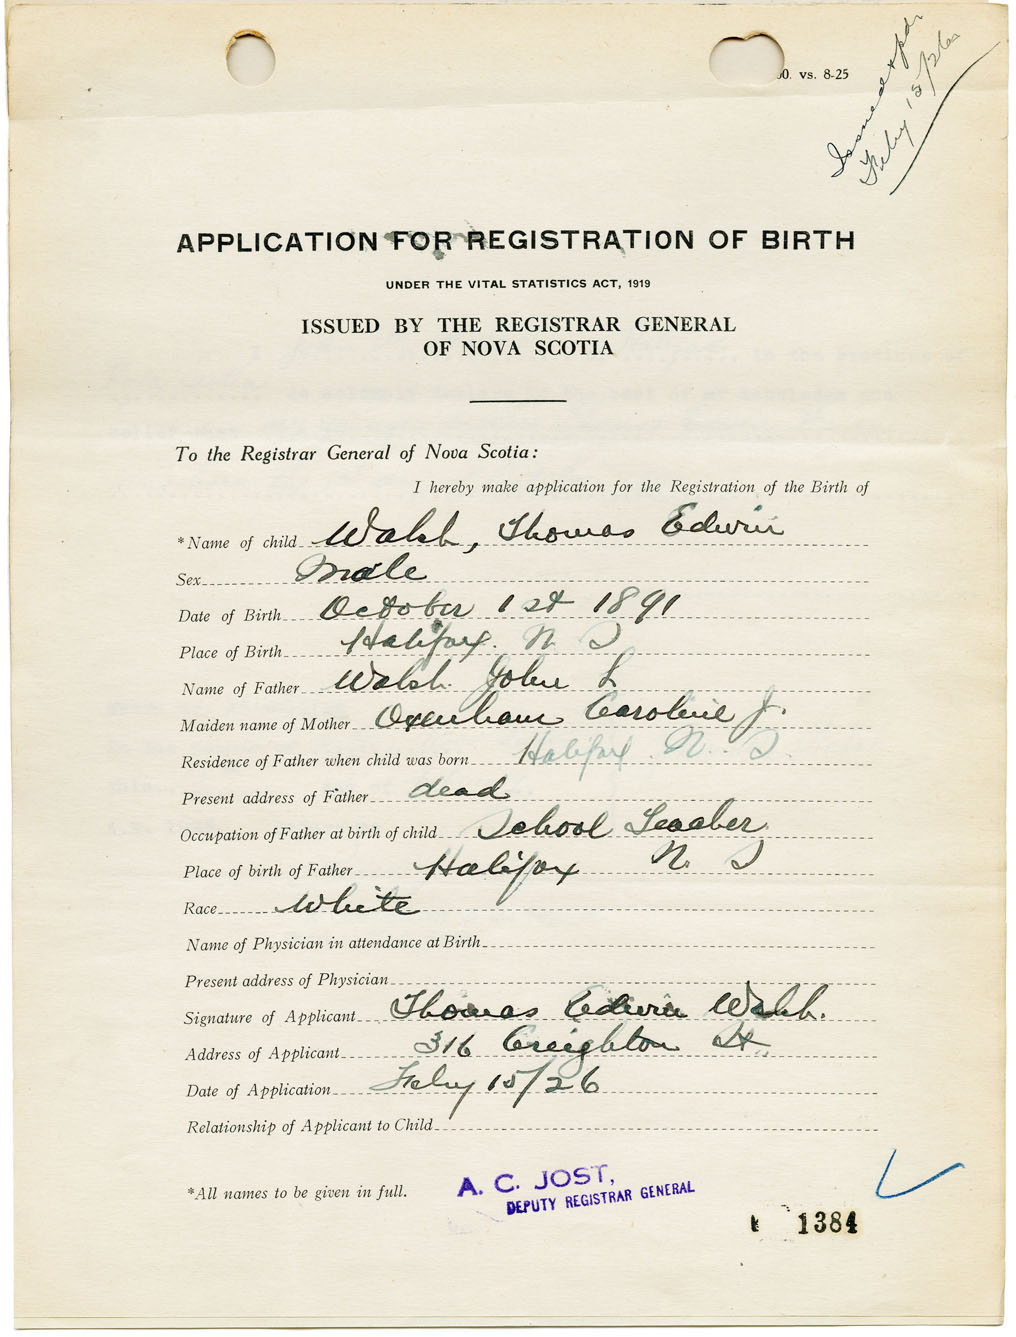 00. vs. 8-25
Issued & pd
Feby 15/26
APPLICATION FOR REGISTRATION OF BIRTH
UNDER THE VITAL STATISTICS ACT, 1919
ISSUED BY THE REGISTRAR GENERAL
OF NOVA SCOTIA
To the Registrar General of Nova Scotia:
I hereby make application for the Registration of the Birth of
*Name of child Walsh, Thomas Edwin
Sex Male
Date of Birth October 1st 1891
Place of Birth Halifax. N S
Name of Father Walsh John L
Maiden name of Mother Oxenham Caroline J.
Residence of Father when child was born Halifax. N. S.
Present address of Father dead
Occupation of Father at birth of child School Teacher
Place of birth of Father Halifax N. S
Race White
Name of Physician in attendance at Birth
Present address of Physician
Signature of Applicant Thomas Edwin Walsh.
Address of Applicant 316 Creighton St.
Date of Application Feby 15/26
Relationship of Applicant to Child
*All names to be given in full.
A. C. JOST,
DEPUTY REGISTRAR GENERAL
1384